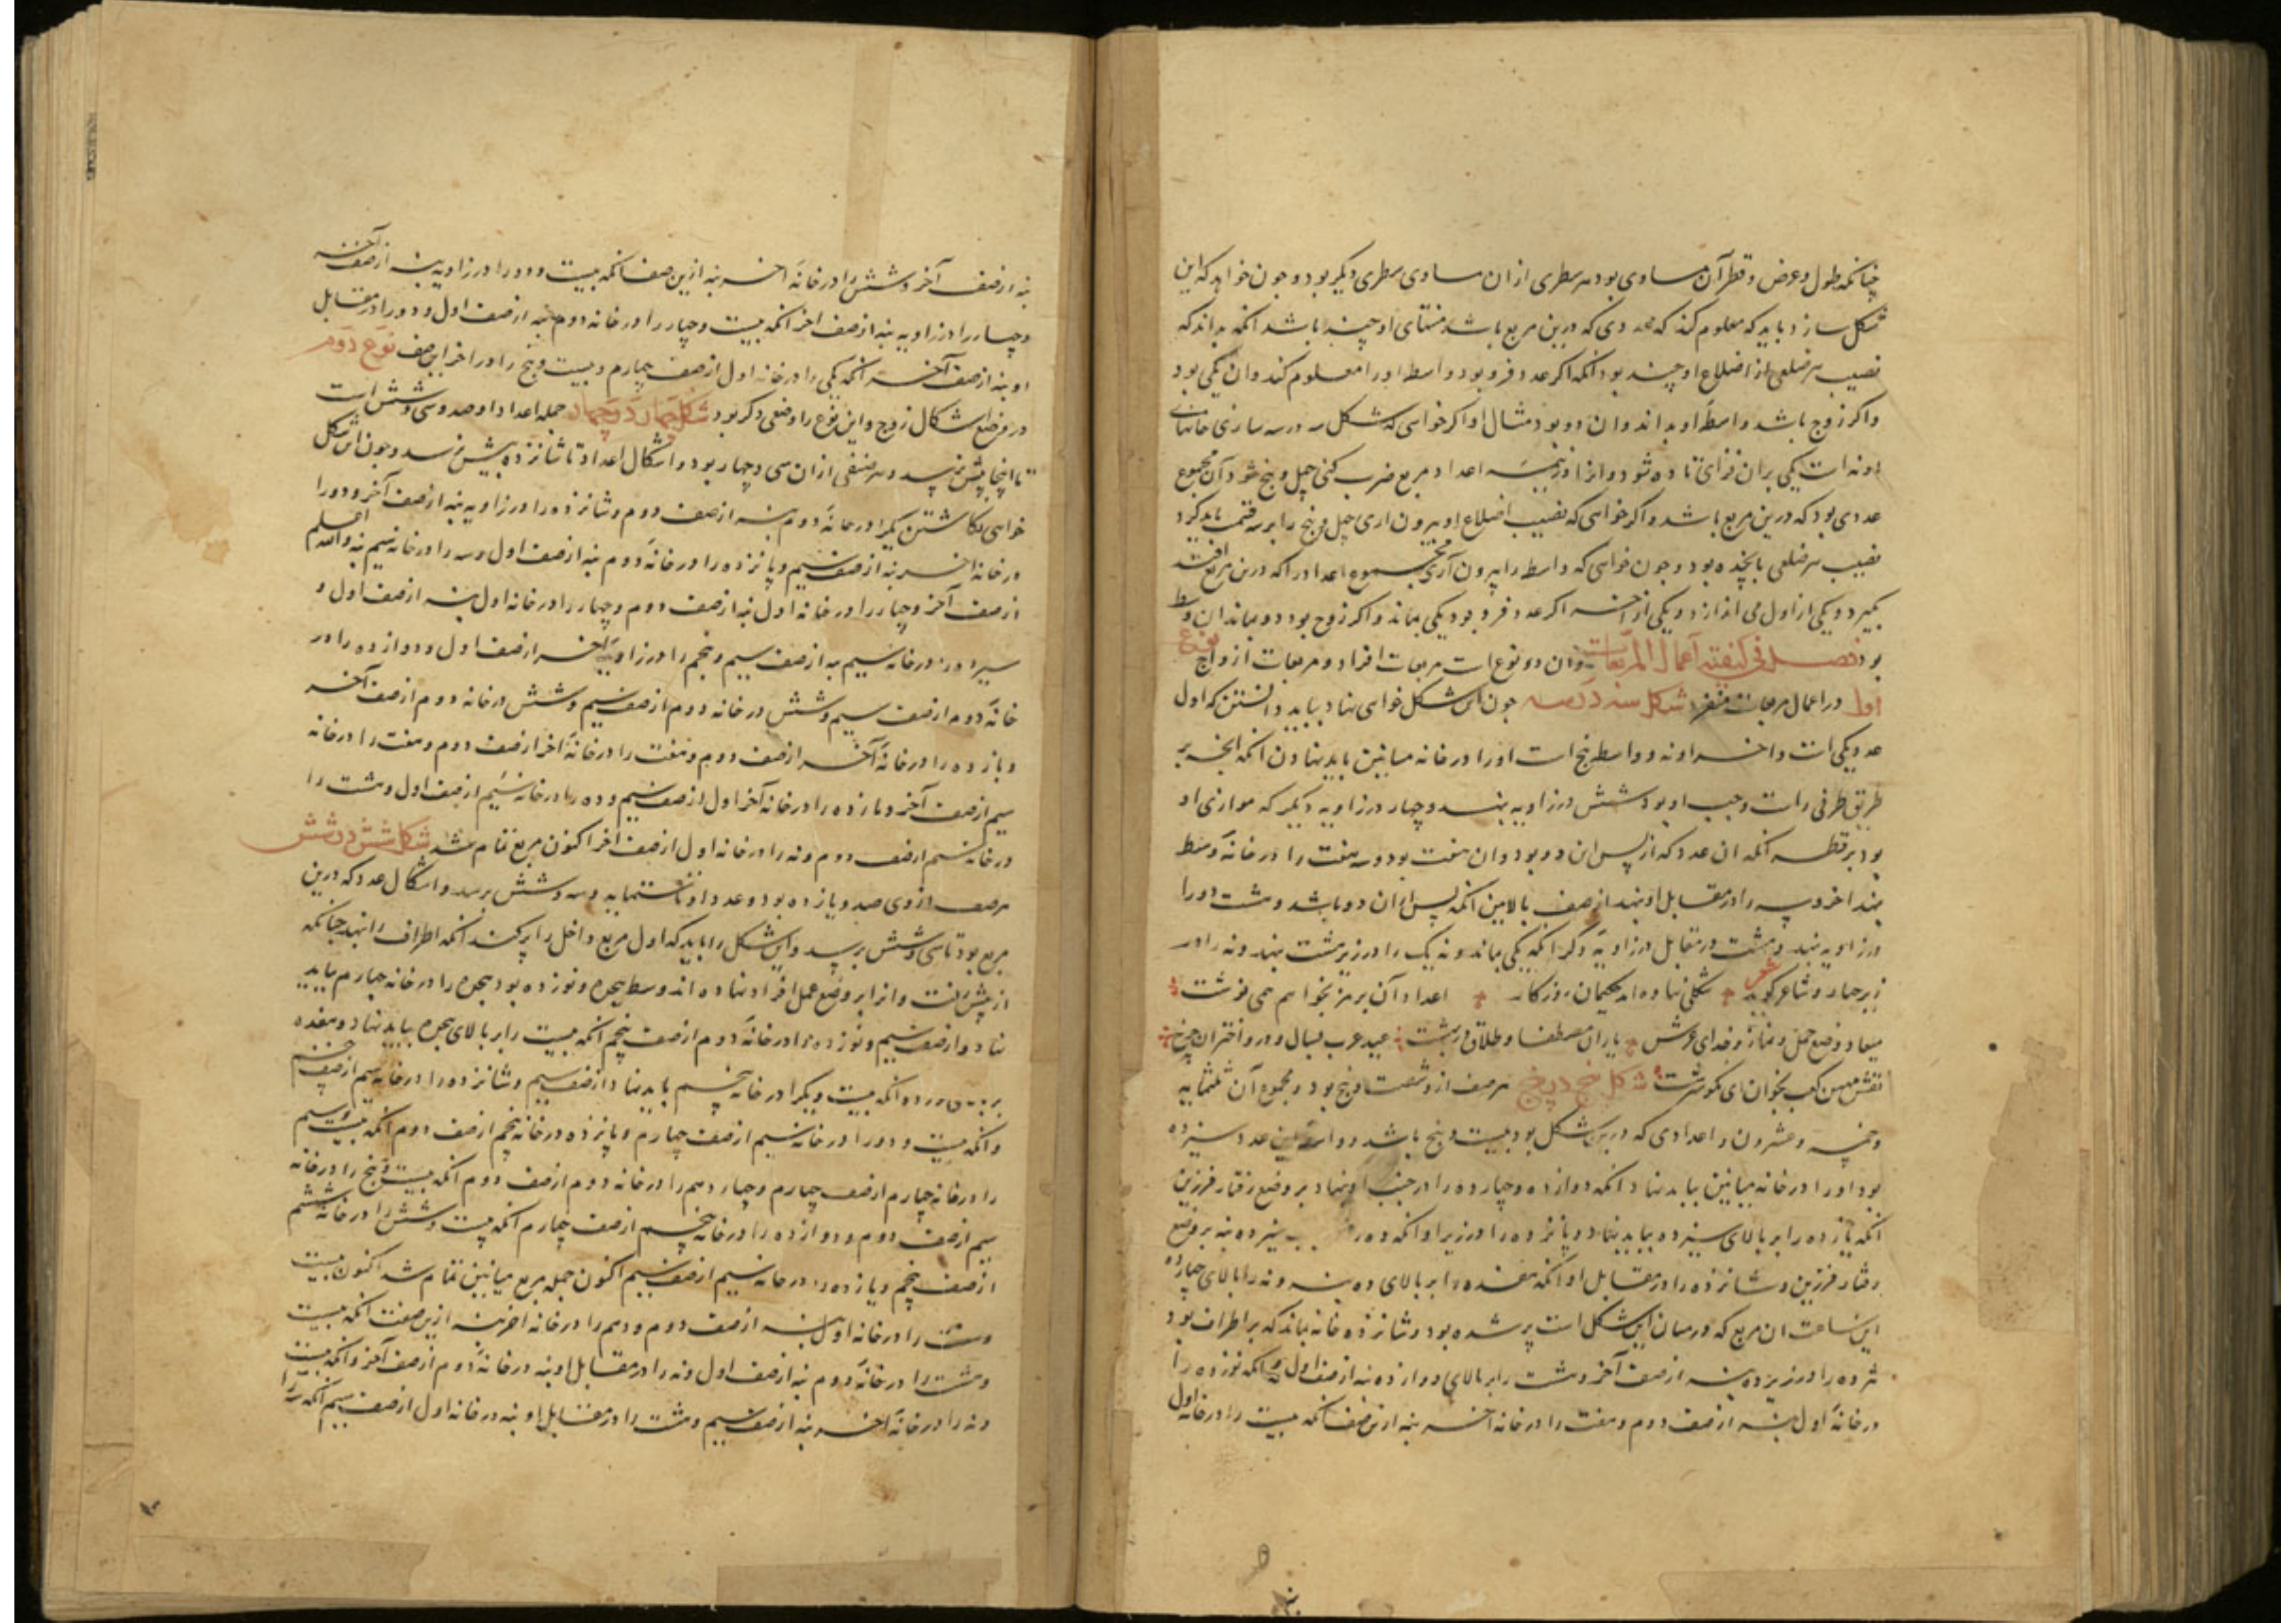 چنانکه طول و عرض و قطر آن مساوی بود هر سطری از ان مساوی سطری دیگر بود و چون خواهد که این
شکل سازد باید که معلوم کند که عددی که درین مربع باشد منتهای او چند باشد انکه بداند که
نصیب هر ضلعی از اضلاع او چند بود انکه اکر عدد فرد بود واسط اورا معلوم کند و ان یکی بود
واکر زوج باشد واسط او بداند و ان دو بود مثال او اکر خواهی که شکل سه در سه سازی خانهاء
او نه است یکی بران فزای تا ده شود و انرا در نیمه اعداد مربع ضرب کنی چهل و پنج شود آن مجموع
عددی بود که درین مربع باشد و اکر خواهی که نصیب اضلاع او بیرون اری چهل و پنج را بر سه قسمت باید کرد
نصیب هر ضلعی پانچده بود و چون خواهی که واسط را بیرون آری مجموع اعداد را که درین مربع افتد
بکیرد و یکی از اول می اندازد و یکی از آخر اکر عدد فرد بود یکی بماند و اکر زوج بود دو بماند ان وسط
بود فصل فی کیفیة اعمال المربعات و ان دو نوع است مربعات افراد و مربعات ازواج نوع
اول در اعمال مربعات مفرد شکل سه در سه چون این شکل خواهی نهاد بباید دانستن که اول
عدد یکی است و اخر او نه و واسط پنج است اورا در خانه میانین باید نهادن انکه انچه بر
طریق طرفی راست و چپ او بود شش در زاویه بنهد و چهار در زاویه دیکر که موازی او
بود بر قطر انکه ان عدد که از پس ان دو بود و ان هفت بود و سه هفت را در خانه وسط
بنهد اخر و سه را در مقابل او بنهد از صف بالایین انکه پس از ان دو باشد و هشت دو را
در زاویه بنهد و هشت در مقابل در زاویه دکر انکه یکی بماند و نه یک را در زیر هشت بنهد و نه را در
زیر چهار و شاعر کوید شعر شکلی نهاده اند حکیمان روزکار اعداد آن برمز بخواهم همی نوشت
میعاد وضع حمل و نماز و خدای عرش یاران مصطفا و طلاق و بهشت عید عرب و در و اختران چرخ
نقش مبین کعب بخوان ای نکو سرشت شکل پنج در پنج هر صف ازو شصت و پنج بود و مجموع آن ثلثمایه
و خمسه و عشرون و اعدادی که درین شکل بود بیست و پنج باشد و واسطین عدد سیزده
بود اورا در خانه میانین بباید نهاد انکه دوازده و چهارده را در جنب او نهاد بر وضع رفتار فرزین
انکه یازده را بر بالای سیزده بباید نهاد و پانزده را در زیر او انکه ده را سیزده بنه بر وضع
رفتار فرزین و شانزده را در مقابل او انکه هفده را بر بالای ده بنه و نه را بالای چهارده
این ساعت ان مربع که در میان این شکل است پر شده بود و شانزده خانه بماند که بر اطراف بود
هژده را در زیر ده بنه از صف آخر و هشت را بر بالای دوازده بنه از صف اول و انکه نوزده را
در خانه اول بنه از صف دوم و هفت را در خانه اخر بنه ازین صف انکه بیست را در خانه اول
بنه از صف آخر و شش را در خانه اخر بنه ازین صف انکه بیست و دو را در زاویه بنه از صف آخر
و چهار را در زاویه بنه از صف اخر انکه بیست و چهار را در خانه دوم بنه از صف اول و دو را در مقابل
او بنه از صف آخر انکه یکی را در خانه اول از صف چهارم و بیست و پنج را در اخر این صف نوع دوم
در وضع اشکال زوج و این نوع را وضعی دکر بود شکل چهار در چهار جمله اعداد او صد و سی و شش است
تا اینجا بیش نرسد و هر صفی ازان سی و چهار بود و اشکال اعداد تا شانزده بیش نرسد و چون این شکل
خواهی نکاشتن یکی را در خانه دوم بنه از صف دوم و شانزده را در زاویه بنه از صف آخر و دو را
در خانه اخر بنه از صف سیم و پانزده را در خانه دوم بنه از صف اول و سه را در خانه سیم بنه والله اعلم
از صف آخر و چهار را در خانه اول بنه از صف دوم و چهار را در خانه اول بنه از صف اول و
سیزده را در خانه سیم بنه از صف سیم و پنجم را در زاویه اخر از صف اول و دوازده را در
خانه دوم از صف سیم و شش در خانه دوم از صف سیم و شش در خانه دوم از صف آخر
و یازده را در خانه آخر از صف دوم و هفت را در خانه اخر از صف دوم و هفت را در خانه
سیم از صف آخر و یازده را در خانه آخر اول از صف سیم و ده را در خانه سیم از صف اول و هشت را
در خانه سیم از صف دوم و نه را در خانه اول از صف اخر اکنون مربع تمام شد شکل شش در شش
هر صف ازوی صد و یازده بود و عدد او تا ستمایه و سه و شش برسد و اشکال عدد که درین
مربع بود تا سی و شش برسد و این شکل را باید که اول مربع داخل را پر کند انکه اطراف را بنهد چنانکه
از پیش رفت و انرا بر وضع عمل افراد نهاده اند و سط هجده و نوزده بود هجده را در خانه چهارم بباید
نهاد از صف سیم و نوزده را در خانه دوم از صف پنجم انکه بیست را بر بالای هجده بباید نهاد و هفده
انکه بیست و یک را در خانه پنجم باید نهاد از صف سیم و شانزده را در خانه سیم از صف پنجم
و انکه بیست و دو را در خانه سیم از صف چهارم و پانزده در خانه پنجم از صف دوم انکه بیست و سیم
را در خانه چهارم از صف چهارم و چهاردهم را در خانه دوم از صف دوم انکه بیست و پنج را در خانه
سیم از صف دوم و دوازده را در خانه پنجم از صف چهارم انکه بیست و شش را در خانه ششم
از صف پنجم و یازده را در خانه سیم از صف سیم اکنون جمله مربع میانین تمام شد اکنون بیست
و هشت را در خانه اول بنه از صف دوم و دهم را در خانه اخر بنه ازین صفت انکه بیست
و هشت را در خانه دوم بنه از صف اول و نه را در مقابل او بنه در خانه دوم از صف آخر و انکه بیست
و نه را در خانه اخر بنه از صف سیم و هشت را در مقابل او بنه در خانه اول از صف سیم انکه سی را